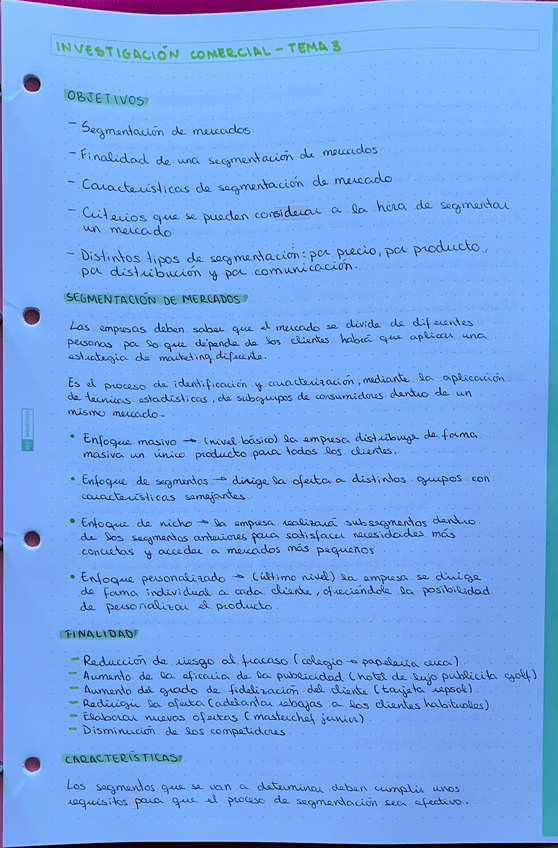 INVESTIGACIÓN COMERCIAL - TEMA 3
OBJETIVOS
- Segmentación de mercados
- Finalidad de una segmentación de mercados
- Características de segmentación de mercado
- Criterios que se pueden considerar a la hora de segmentar
un mercado
- Distintos tipos de segmentación: por precio, por producto,
por distribución y por comunicación.
SEGMENTACIÓN DE MERCADOS
Las empresas deben saber que el mercado se divide de diferentes
personas por lo que depende de los clientes habrá que aplicar una
estrategia de marketing diferente.
Es el proceso de identificación y caracterización, mediante la aplicación
de tecnicas estadísticas, de subgrupos de consumidores dentro de un
mismo mercado.
• Enfoque masivo → (nivel básico) la empresa distribuye de forma
masiva un único producto para todos los clientes.
• Enfoque de segmentos → dirige la oferta a distintos grupos con
características semejantes.
• Enfoque de nicho → la empresa realizará subsegmentos dentro
de los segmentos anteriores para satisfacer necesidades más
concretas y acceder a mercados más pequeños
• Enfoque personalizado → (último nivel) la empresa se dirige
de forma individual a cada cliente, ofreciéndole la posibilidad
de personalizar el producto.
FINALIDAD
- Reducción de riesgo al fracaso (colegio → papelería cerca)
- Aumento de la eficacia de la publicidad (hotel de lujo publicita golf)
- Aumento del grado de fidelización del cliente (tarjeta repsol)
- Redirigir la oferta (adelantar rebajas a los clientes habituales)
- Elaborar nuevas ofertas (masterchef junior)
- Disminución de los competidores.
CARACTERÍSTICAS
Los segmentos que se van a determinar deben cumplir unos
requisitos para que el proceso de segmentación sea efectivo.